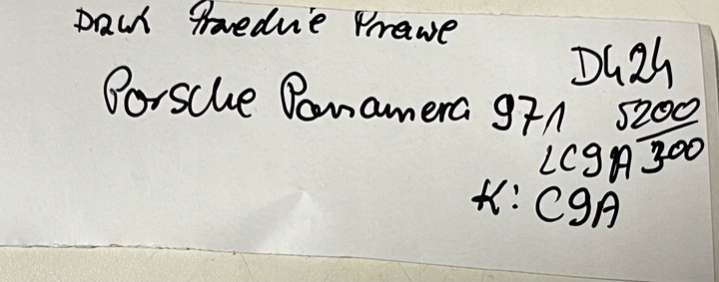 Drzwi Przednie Prawe
D424
Porsche Panamera 971 5200
LC9A 300
K: C9A